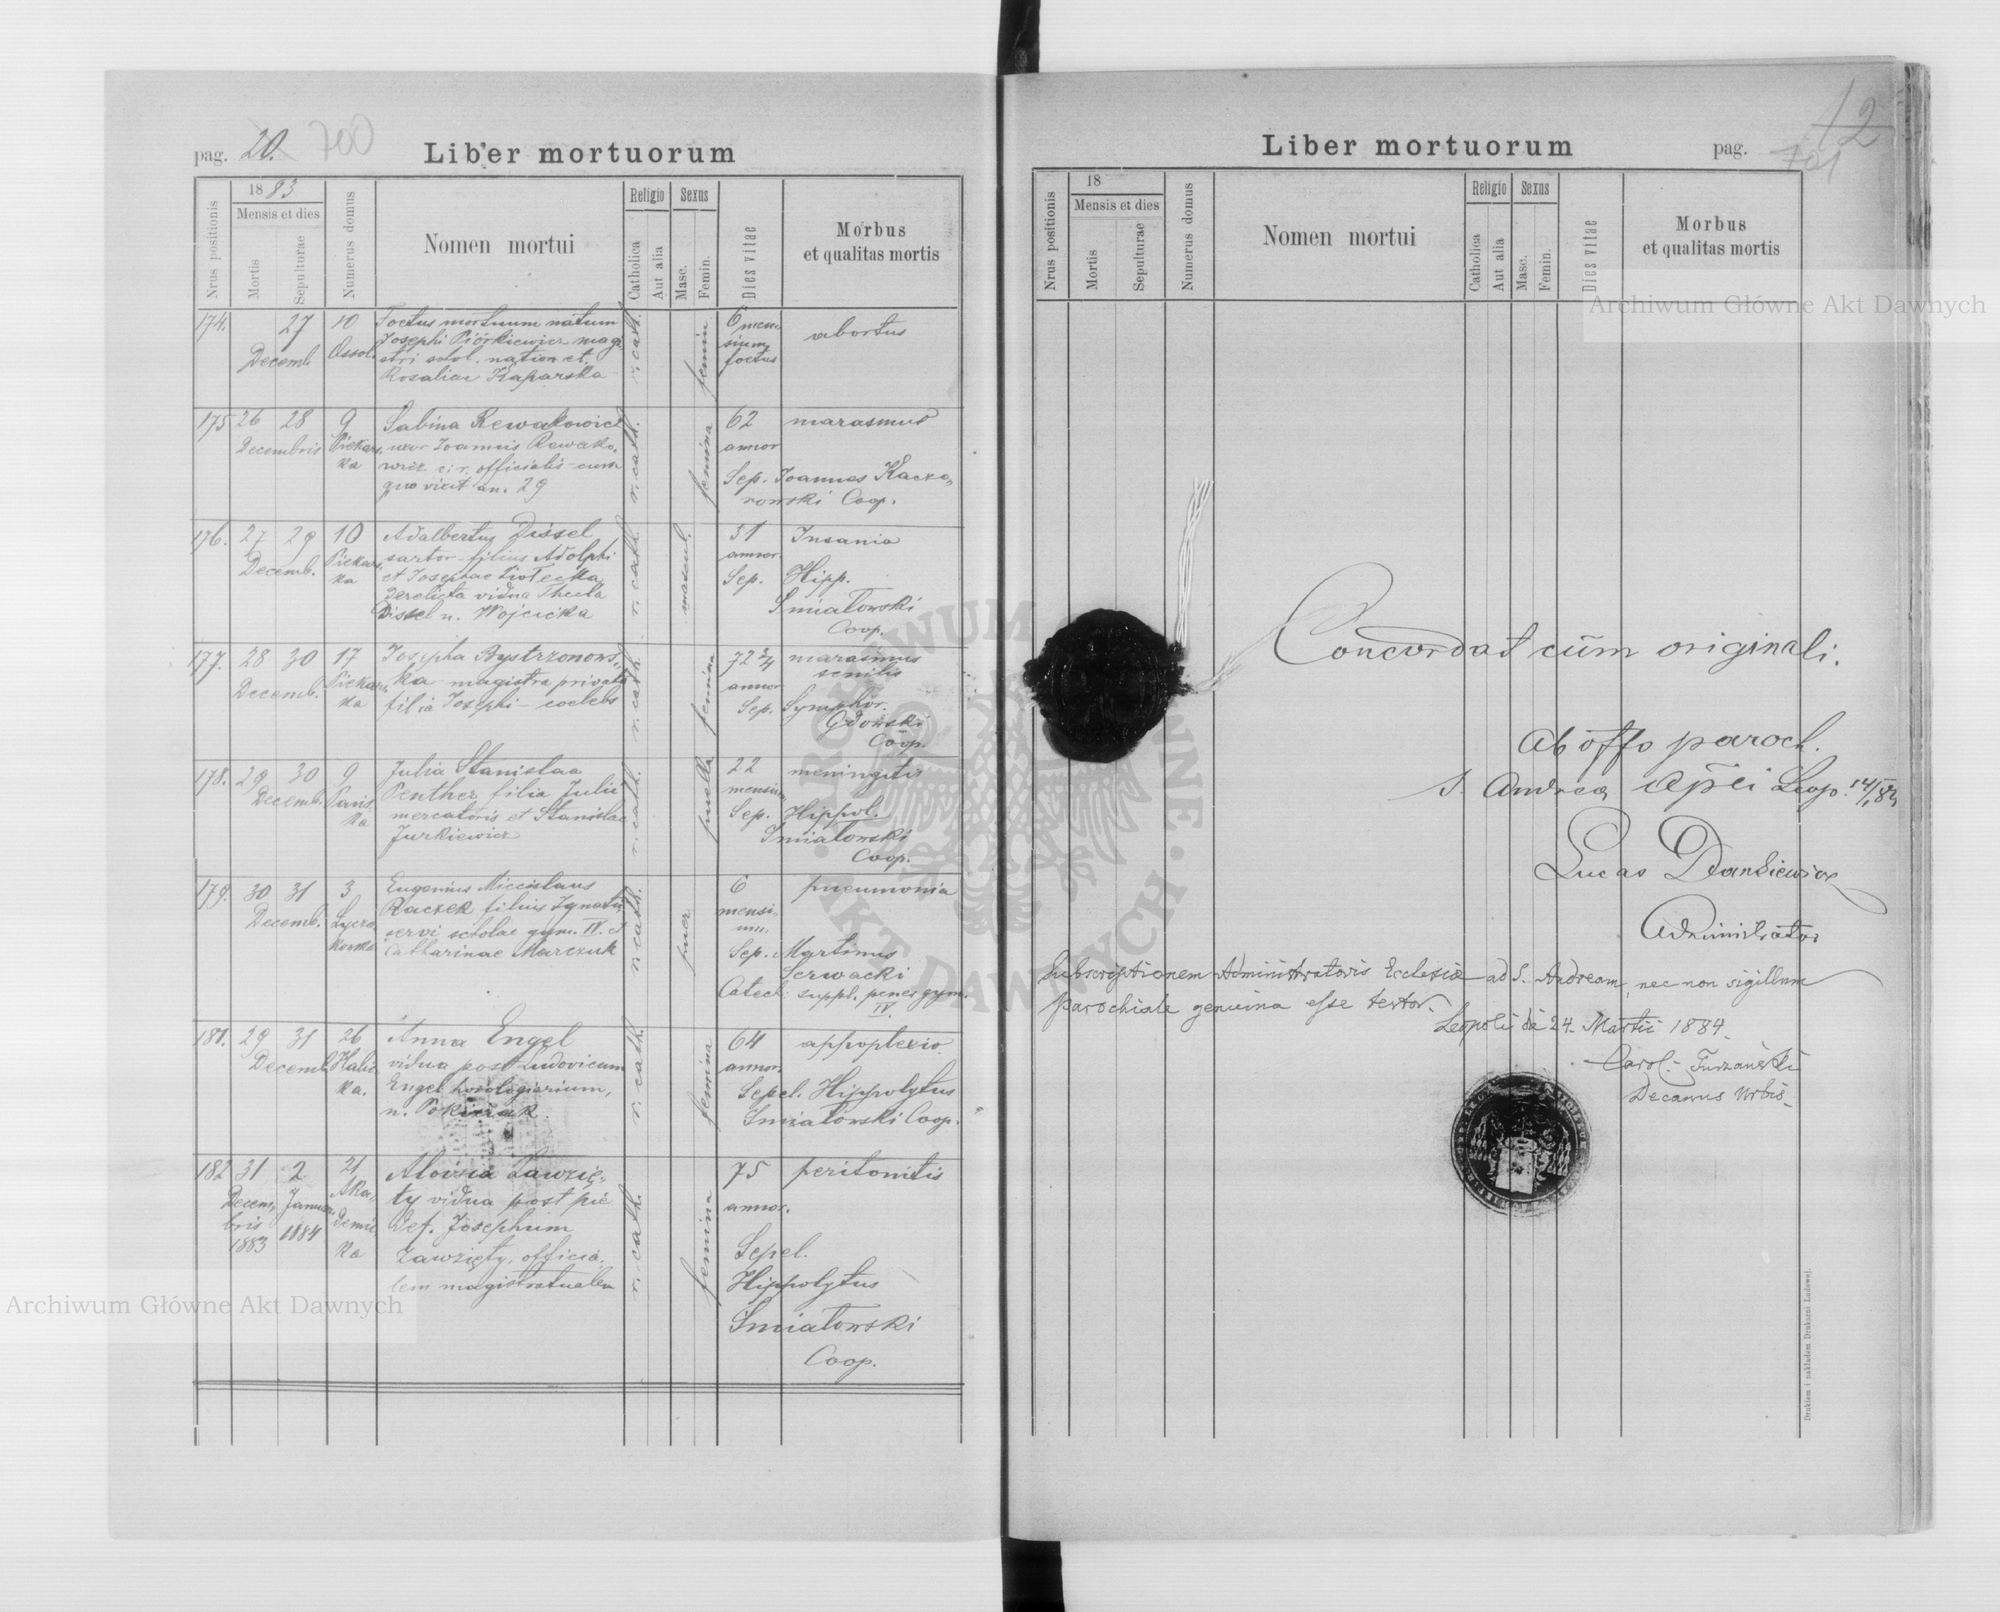 pag. 20. 700
Liber mortuorum
Nrus positionis
1883
Mensis et dies
Mortis
Sepulturae
Numerus domus
Nomen mortui
Religio
Catholica
Aut alia
Sexus
Masc.
Femin.
Dies vitae
Morbus
et qualitas mortis
174. 27 Decemb. 10 Ossol.
Foetus mortuum natum
Josephi Piórkiewicz magi
stri schol. nation et
Rosaliae Kaparska
r. cath. femin.
6 men
sium
foetus
abortus
175 26 28 Decembris 9 Piekars
ka
Sabina Rewakowicz
uxor Joannis Rewako
wicz c. r. officialis cum
quo vixit an. 29
r. cath. femina
62
annor
marasmus
Sep. Joannes Kaczo
rowski Coop.
176. 27 29 Decemb. 10 Piekars
ka
Adalbertus Dissel
sartor filius Adolphi
et Josephae
derelicta vidua Thecla
Dissel n. Wojcicka
r. cath. mascul.
51
annor.
Insania
Sep. Hipp.
Śmiatowski
Coop.
177. 28 30 Decemb. 17 Piekars
ka
Josepha Bystrzonows
ka magistra privata
filia Josephi coelebs
r. cath. femina
72 3/4
annor
marasmus
senilis
Sep. Symphor.
Gdowski
Coop.
178. 29 30 Decemb. 9 Pańs
ka
Julia Stanislaa
Penther filia Julii
mercatoris et Stanislae
Jurkiewicz
r. cath. puella
22
mensium
meningitis
Sep. Hippol.
Śmiatowski
Coop.
179. 30 31 Decemb. 3 Łycza
kowska
Eugenius Miecislaus
Raczek filius Ignatii
servi scholae gym. IV. et
Catharinae Marczuk
r. cath. puer
6
mensi
um.
pneumonia
Sep. Martinus
Serwacki
Catech. suppl. penes gym.
IV.
181. 29 31 Decemb. 26 Halic
ka.
Anna Engel
vidua post Ludovicum
Engel horologiarium,
n. Pokiziak
r. cath. femina
64
annor.
appoplexio
Sepel. Hippolytus
Śmiatowski Coop.
182 31 Decem
bris
1883
2 Januar.
1884
21 Aka
demic
ka
Aloisia Zawzię
ty vidua post pie
def. Josephum
Zawzięty, officia
lem magistratualem
r. cath. femina
75
annor.
peritonitis
Sepel.
Hippolytus
Śmiatowski
Coop.
Liber mortuorum
pag. 12
701
Nrus positionis
18
Mensis et dies
Mortis
Sepulturae
Numerus domus
Nomen mortui
Religio
Catholica
Aut alia
Sexus
Masc.
Femin.
Dies vitae
Morbus
et qualitas mortis
Concordat cum originali.
Ab offo paroch.
S. Andreae apli Leop.
Lucas Dankiewicz
Administrator
Subscriptionem Administratoris Ecclesiae ad S. Andream, nec non sigillum
parochiale genuina esse testor.
Leopoli de 24. Martii 1884.
Carol. Turzański
Decanus Urbis
Drukiem i nakładem Drukarni Ludowej.
Archiwum Główne Akt Dawnych
Archiwum Główne Akt Dawnych
ARCHIWUM GŁÓWNE AKT DAWNYCH